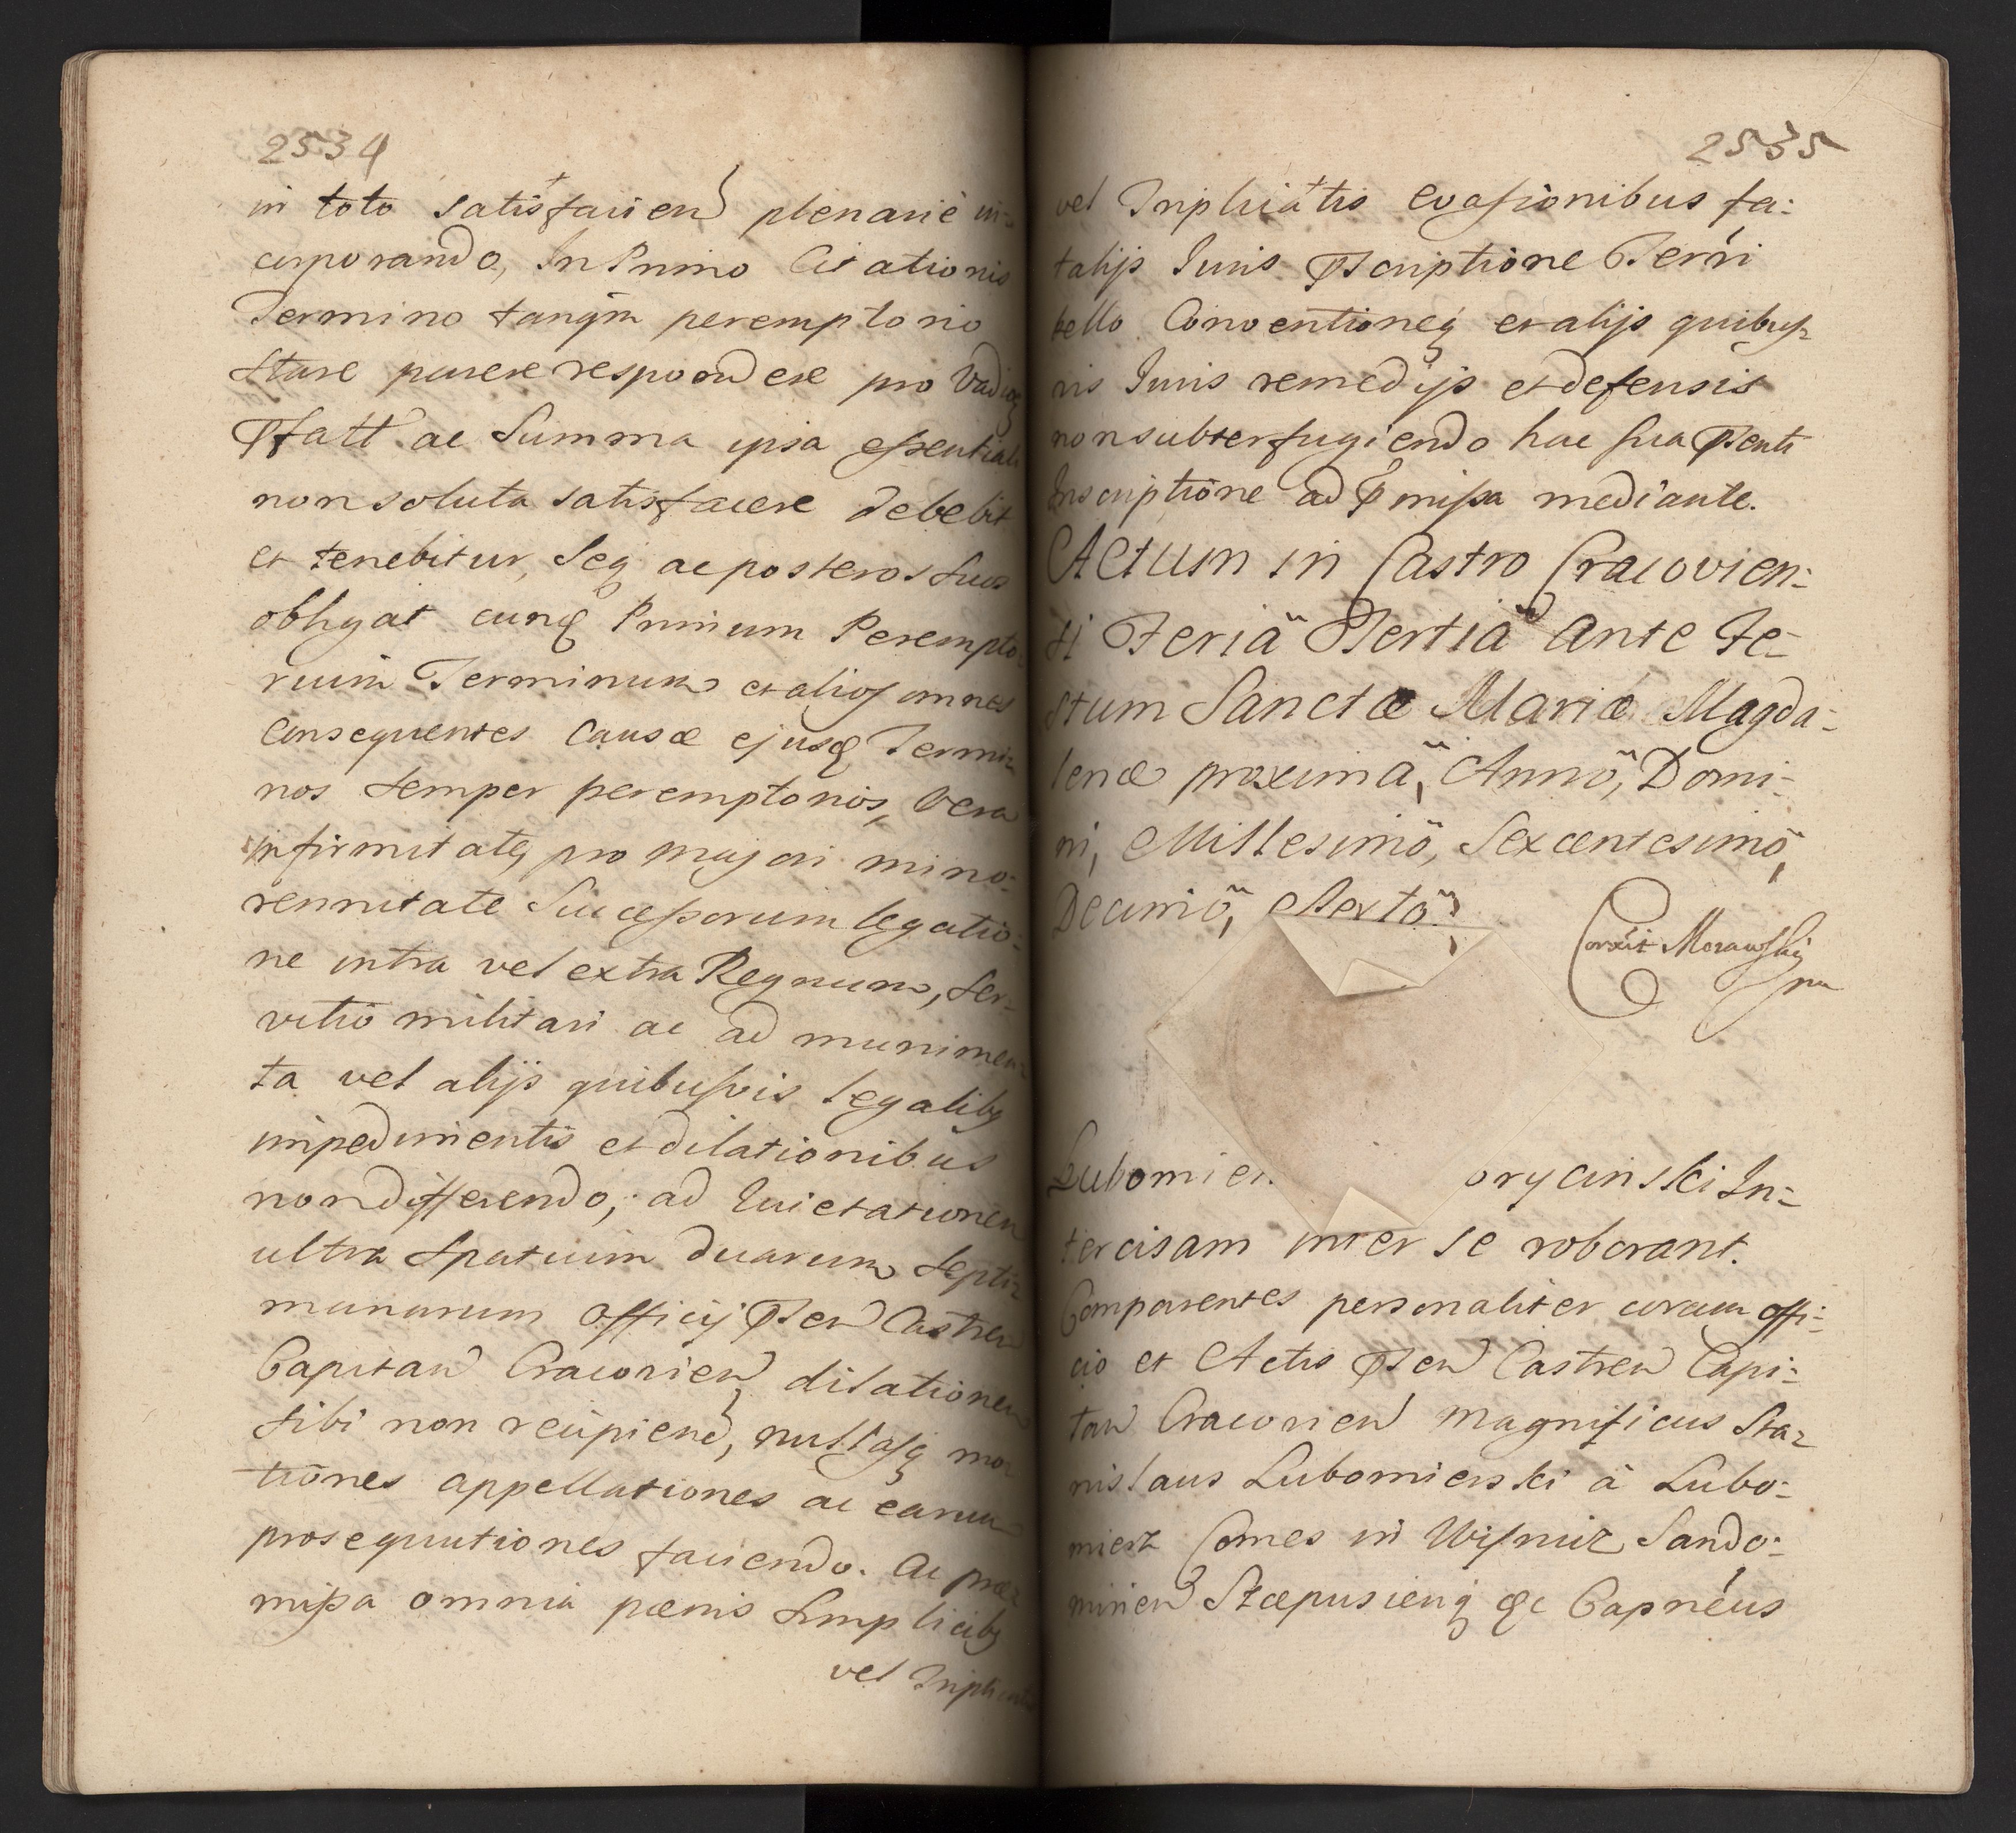 2534
in toto satisfacien plenariè in-
corporando, In Primo Citationis
Termino tanqm peremptorio
stare parere respondere pro Vadioq
Pfatt ac Summa ipsa essentiali
non soluta satisfacere debebit
et tenebitur, Seq ac posteros suos
obligat cunq Primum Perempto-
rium Terminum et alios omnes
consequentes causæ ejusq Termi-
nos semper peremptorios, Vera
infirmitateq pro majori mino-
rennitate Successorum legatio-
ne intra vel extra Regnum, ser-
vitio militari ac ad munimen-
ta vel alijs quibusvis legalibq
impedimentis et dilationibus
non differendo, ad Quietationem
ultra spatium duarum septi-
manarum officij Psen Castren
Capitan Cracovien dilationem
sibi non recipiend, nullasq mo-
tiones appellationes ac earum
prosequutiones faciendo. Ac præ-
missa omnia pænis simplicibq
vel Triplicatis
2535
vel Triplicatis evasionibus fa-
talijs Juris Pscriptione Terri
bello Conventioneq et alijs quibus-
vis Juris remedijs et defensis
non subterfugiendo hac sua Psenti
Inscriptione ad Pmissa mediante.
Actum in Castro Cracovien-
si Feriã Tertiã ante Fe-
stum Sanctæ Mariæ Magda-
lenæ proximã, Annõ, Domi-
ni, Millesimõ, Sexcentesimõ,
Decimõ, Sextõ,
Corexit Morawski
mp
Lubomier orycinski In-
tercisam inter se roborant.
Comparentes personaliter coram offi-
cio et Actis Psen Castren Capi-
tan Cracovien Magnificus Sta-
nislaus Lubomierski à Lubo-
mierz Comes in Wisnicz Sando-
mirien Scæpusienq &c Capneus